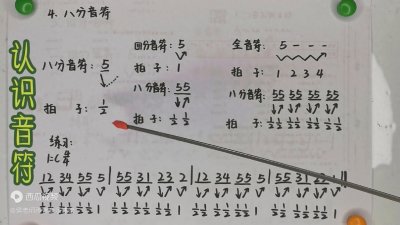 4. 八分音符
认识音符
八分音符: 5
拍 子: 1/2
四分音符: 5
拍 子: 1
八分音符: 55
拍 子: 1/2 1/2
全音符: 5 - - -
拍 子: 1 2 3 4
八分音符: 55 55 55 55
拍 子: 1/2 1/2 1/2 1/2 1/2 1/2 1/2 1/2
练习:
1=C
12 34 55 5 | 55 31 23 2 | 12 34 55 5 | 55 31 23 1 ‖
1/2 1/2 1/2 1/2 1/2 1/2 1 1/2 1/2 1/2 1/2 1/2 1/2 1 1/2 1/2 1/2 1/2 1/2 1/2 1 1/2 1/2 1/2 1/2 1/2 1/2 1
西瓜视频